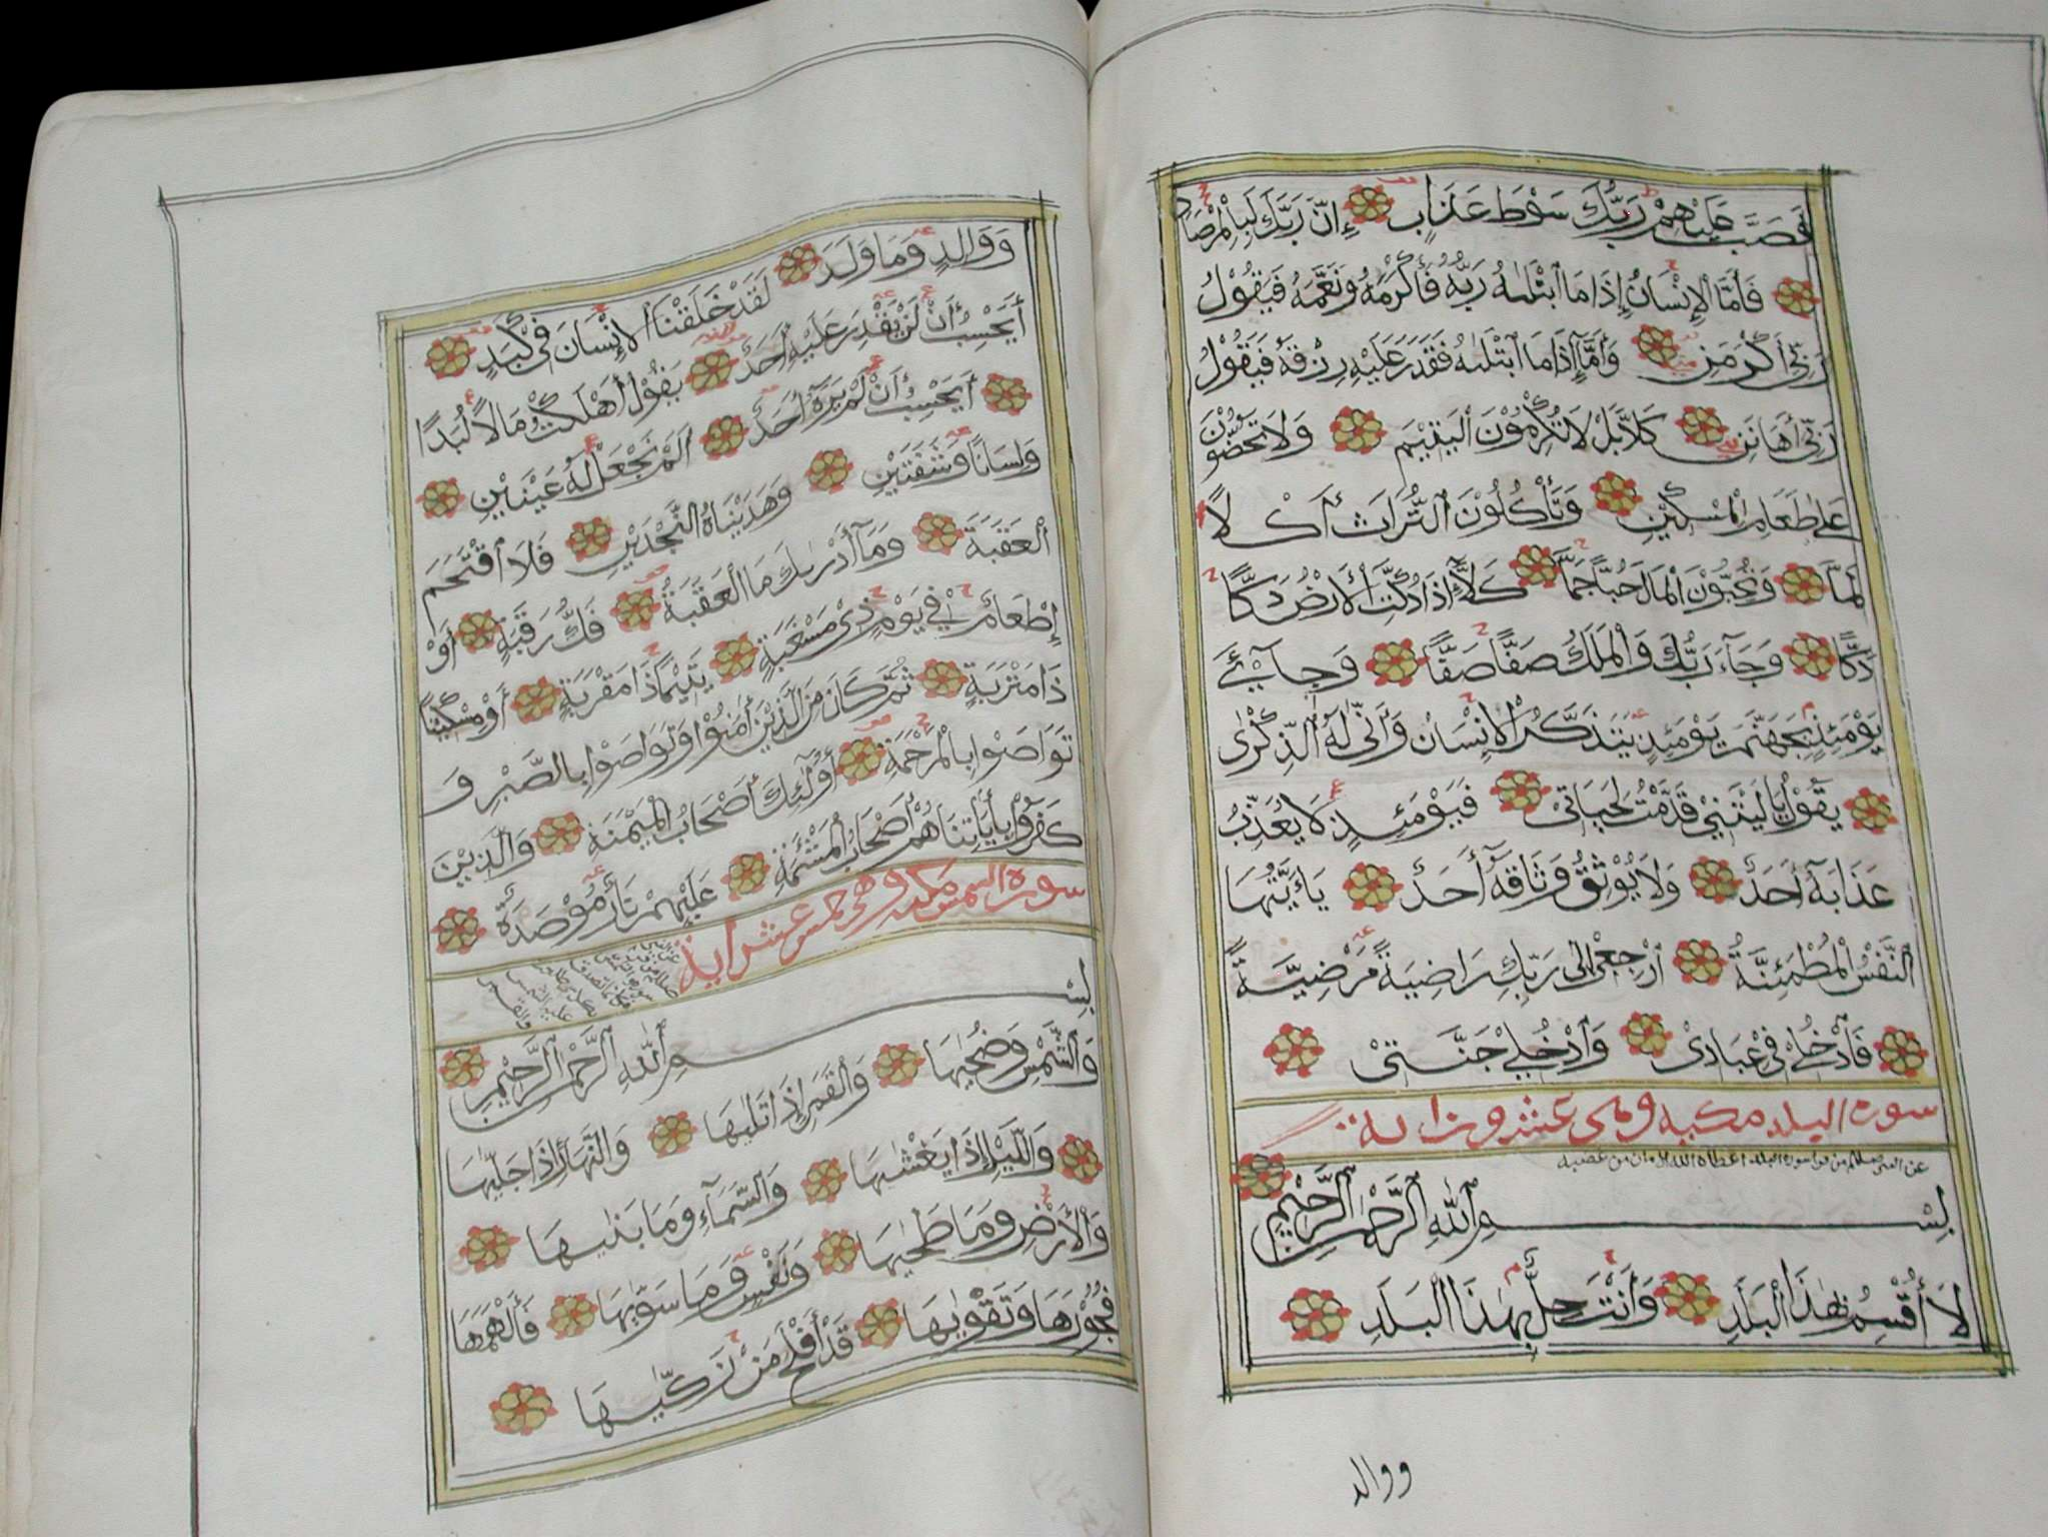 فَصَبَّ عَلَيْهِمْ رَبُّكَ سَوْطَ عَذَابٍ إِنَّ رَبَّكَ لَبِالْمِرْصَادِ
فَأَمَّا الْإِنْسَانُ إِذَا مَا ابْتَلٰىهُ رَبُّهُ فَأَكْرَمَهُ وَنَعَّمَهُ فَيَقُوْلُ
رَبِّيْ أَكْرَمَنِ وَأَمَّا إِذَا مَا ابْتَلٰىهُ فَقَدَرَ عَلَيْهِ رِزْقَهُ فَيَقُوْلُ
رَبِّيْ أَهَانَنِ كَلَّا بَلْ لَا تُكْرِمُوْنَ الْيَتِيْمَ وَلَا تَحَضُّوْنَ
عَلٰى طَعَامِ الْمِسْكِيْنِ وَتَأْكُلُوْنَ التُّرَاثَ أَكْلًا
لَمًّا وَتُحِبُّوْنَ الْمَالَ حُبًّا جَمًّا كَلَّا إِذَا دُكَّتِ الْأَرْضُ دَكًّا
دَكًّا وَجَاءَ رَبُّكَ وَالْمَلَكُ صَفًّا صَفًّا وَجِايْءَ
يَوْمَئِذٍ بِجَهَنَّمَ يَوْمَئِذٍ يَتَذَكَّرُ الْإِنْسَانُ وَأَنّٰى لَهُ الذِّكْرٰى
يَقُوْلُ يَا لَيْتَنِيْ قَدَّمْتُ لِحَيَاتِيْ فَيَوْمَئِذٍ لَا يُعَذِّبُ
عَذَابَهُ أَحَدٌ وَلَا يُوْثِقُ وَثَاقَهُ أَحَدٌ يَا أَيَّتُهَا
النَّفْسُ الْمُطْمَئِنَّةُ ارْجِعِيْ إِلٰى رَبِّكِ رَاضِيَةً مَرْضِيَّةً
فَادْخُلِيْ فِيْ عِبَادِيْ وَادْخُلِيْ جَنَّتِيْ
سورة البلد مكية وهى عشرون اية
عن النبى صلعم من قرا سورة البلد اعطاه الله الامان من غضبه
بِسْمِ اللّٰهِ الرَّحْمٰنِ الرَّحِيْمِ
لَا أُقْسِمُ بِهٰذَا الْبَلَدِ وَأَنْتَ حِلٌّ بِهٰذَا الْبَلَدِ
ووالد
وَوَالِدٍ وَمَا وَلَدَ لَقَدْ خَلَقْنَا الْإِنْسَانَ فِيْ كَبَدٍ
أَيَحْسِبُ أَنْ لَنْ يَقْدِرَ عَلَيْهِ أَحَدٌ يَقُوْلُ أَهْلَكْتُ مَالًا لُبَدًا
أَيَحْسِبُ أَنْ لَمْ يَرَهُ أَحَدٌ أَلَمْ نَجْعَلْ لَهُ عَيْنَيْنِ
وَلِسَانًا وَشَفَتَيْنِ وَهَدَيْنَاهُ النَّجْدَيْنِ فَلَا اقْتَحَمَ
الْعَقَبَةَ وَمَا أَدْرٰىكَ مَا الْعَقَبَةُ فَكُّ رَقَبَةٍ أَوْ
إِطْعَامٌ فِيْ يَوْمٍ ذِيْ مَسْغَبَةٍ يَتِيْمًا ذَا مَقْرَبَةٍ أَوْ مِسْكِيْنًا
ذَا مَتْرَبَةٍ ثُمَّ كَانَ مِنَ الَّذِيْنَ أٰمَنُوْا وَتَوَاصَوْا بِالصَّبْرِ وَ
تَوَاصَوْا بِالْمَرْحَمَةِ أُوْلٰئِكَ أَصْحَابُ الْمَيْمَنَةِ وَالَّذِيْنَ
كَفَرُوْا بِأٰيَاتِنَا هُمْ أَصْحَابُ الْمَشْئَمَةِ عَلَيْهِمْ نَارٌ مُؤْصَدَةٌ
سورة الشمس مكية وهى خمس عشر اية
بِسْمِ اللّٰهِ الرَّحْمٰنِ الرَّحِيْمِ
وَالشَّمْسِ وَضُحٰيهَا وَالْقَمَرِ إِذَا تَلٰيهَا وَالنَّهَارِ إِذَا جَلّٰيهَا
وَاللَّيْلِ إِذَا يَغْشٰيهَا وَالسَّمَاءِ وَمَا بَنٰيهَا
وَالْأَرْضِ وَمَا طَحٰيهَا وَنَفْسٍ وَمَا سَوّٰيهَا فَأَلْهَمَهَا
فُجُوْرَهَا وَتَقْوٰيهَا قَدْ أَفْلَحَ مَنْ زَكّٰيهَا